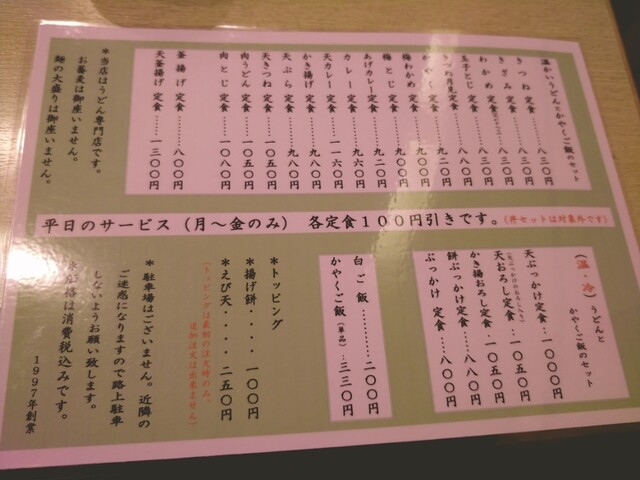 温かいうどんとかやくご飯のセット
きつね 定食……八三〇円
きざみ 定食……八三〇円
わかめ 定食……八三〇円
玉子とじ 定食……八八〇円
きつね月見定食……九二〇円
かやく 定食……九〇〇円
梅わかめ 定食……九〇〇円
梅とじ 定食……九二〇円
あげカレー定食……九六〇円
カレー 定食……九六〇円
天カレー 定食……一一六〇円
かき揚げ 定食……九八〇円
天ぷら 定食……九八〇円
天きつね 定食……一〇五〇円
肉うどん 定食……一〇五〇円
肉とじ 定食……一〇八〇円
釜揚げ 定食……八〇〇円
天釜揚げ 定食……一三〇〇円
＊当店はうどん専門店です。
お蕎麦は御座いません。
麺の大盛りは御座いません。
平日のサービス（月～金のみ） 各定食１００円引きです。（丼セットは対象外です）
（温・冷）うどんと
かやくご飯のセット
天ぶっかけ定食…一〇〇〇円
天おろし定食…一〇五〇円
かき揚おろし定食…一〇五〇円
餅ぶっかけ定食……八〇〇円
ぶっかけ 定食……八〇〇円
白ご飯…………二〇〇円
かやくご飯（単品）…三三〇円
＊トッピング
＊揚げ餅・・・・一〇〇円
＊えび天・・・・二五〇円
（トッピングは最初の注文時のみ、
追加注文は出来ません）
＊駐車場はございません。近隣の
ご迷惑になりますので路上駐車
しないようお願い致します。
＊価格は消費税込みです。
１９９７年創業